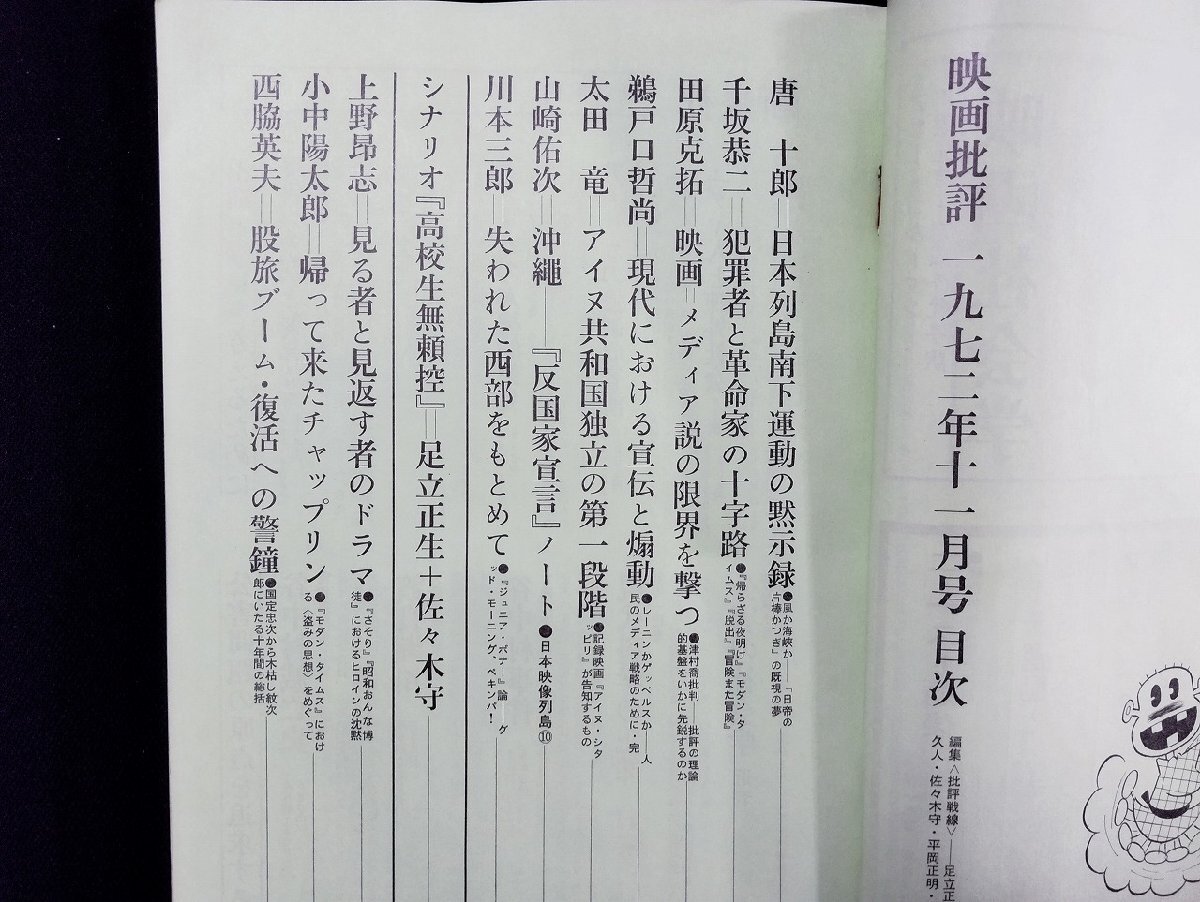 映画批評 一九七二年十一月号 目次
編集〈批評戦線〉――足立正
久人・佐々木守・平岡正明・
唐 十郎＝日本列島南下運動の黙示録
●風か海峡か――「日帝の
片棒かつぎ」の既視の夢
千坂恭二＝犯罪者と革命家の十字路
●『帰らざる夜明け』『モダン・タ
イムス』『脱出』『冒険また冒険』
田原克拓＝映画＝メディア説の限界を撃つ
●津村喬批判――批評の理論
的基盤をいかに先鋭するのか
鵜戸口哲尚＝現代における宣伝と煽動
●レーニンかゲッペルスか――人
民のメディア戦略のために・完
太田 竜＝アイヌ共和国独立の第一段階
●記録映画『アイヌ・シタ
ッピリ』が告知するもの
山崎佑次＝沖縄――『反国家宣言』ノート
●日本映像列島⑩
川本三郎＝失われた西部をもとめて
●『ジュニア・ボナー』論――グ
ッド・モーニング、ペキンパ！
シナリオ『高校生無頼控』＝足立正生＋佐々木守
上野昂志＝見る者と見返す者のドラマ
●『さそり』『昭和おんな博
徒』におけるヒロインの沈黙
小中陽太郎＝帰って来たチャップリン
●『モダン・タイムス』におけ
る〈盗みの思想〉をめぐって
西脇英夫＝股旅ブーム・復活への警鐘
●国定忠次から木枯し紋次
郎にいたる十年間の総括